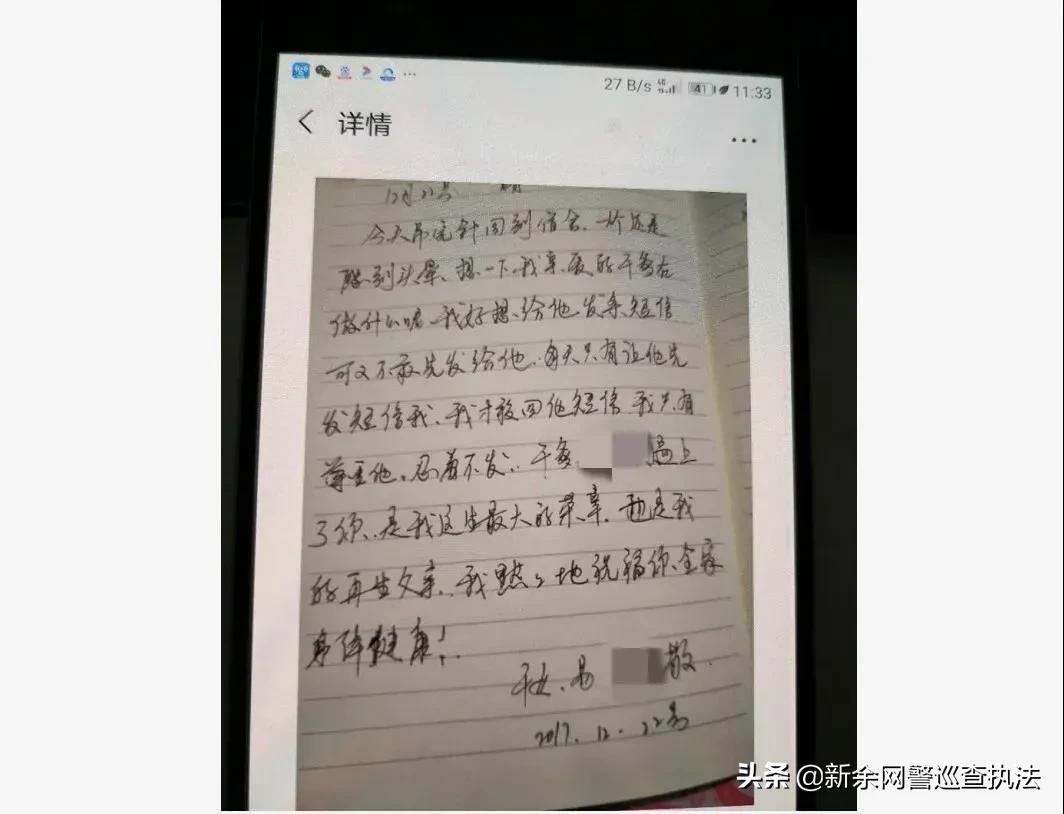 27 B/s 41 11:33
详情
12月22号 晴
今天吊完针回到宿舍、一个还是
感到头晕、想一下我亲爱的干爹在
做什么呢、我好想、给他、发条短信
可又不敢先发给他、每天只有让他先
发短信我、我才敢回他短信、我只有
尊重他、忍着不发、干爹、遇上
了你、是我这生最大的荣幸、也是我
的再生父亲、我默々地祝福你、全家
身体健康!
女、易 敬、
2017. 12. 22号
头条 @新余网警巡查执法